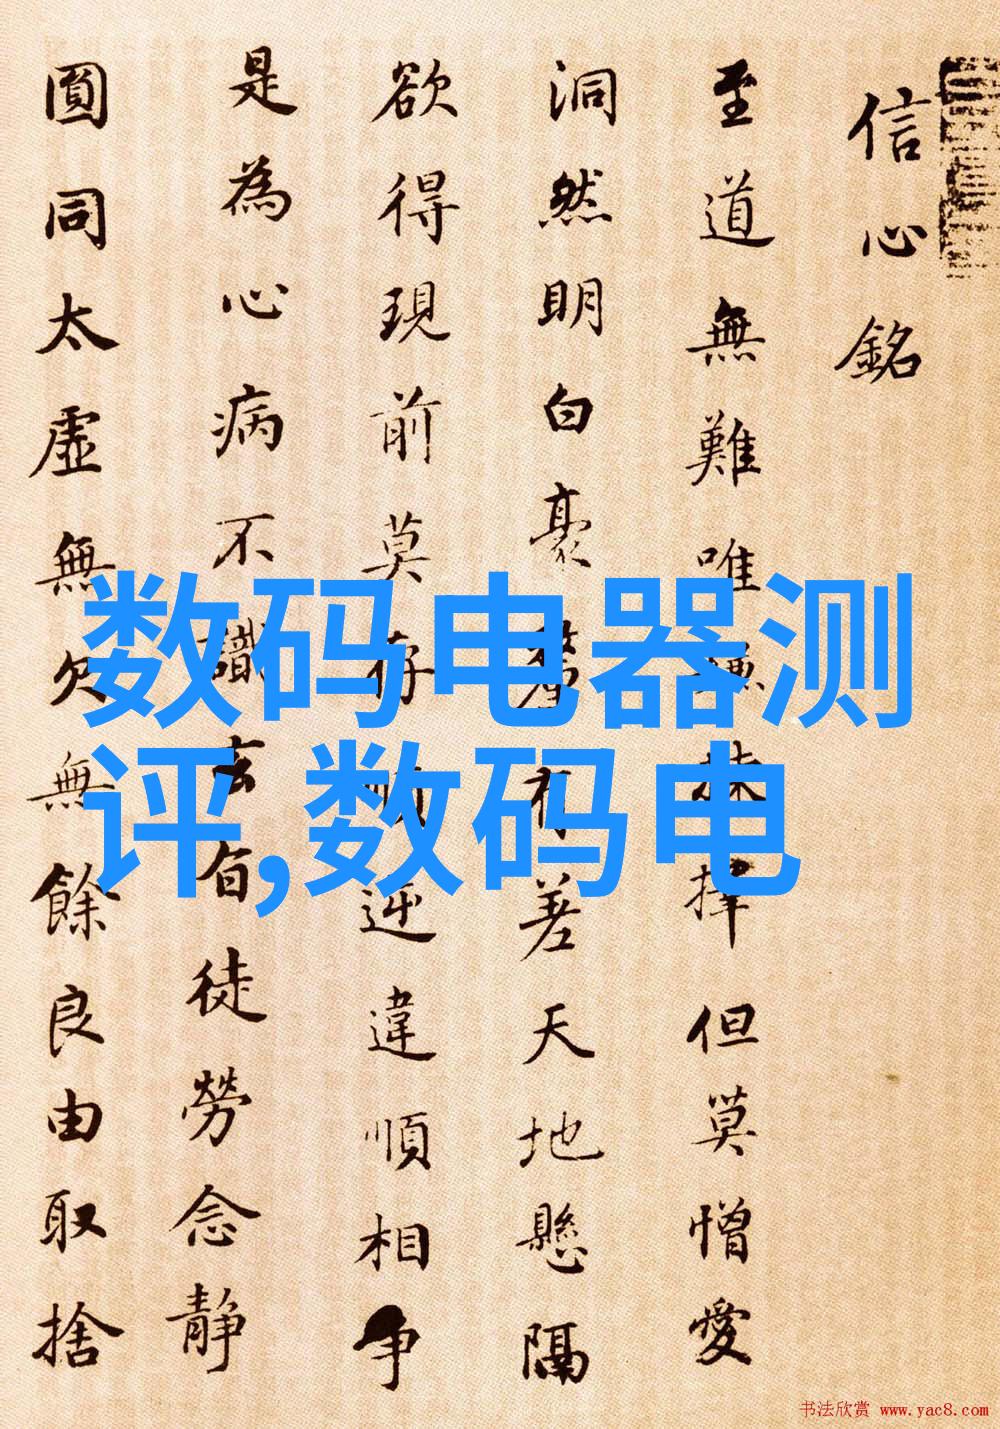 信心銘
至道無難唯嫌揀擇但莫憎愛
洞然明白豪釐有差天地懸隔
欲得現前莫存順逆違順相争
是為心病不識玄旨徒勞念静
圓同太虛無欠無餘良由取捨
数码电器测
评,数码电
书法欣赏 www.yac8.com